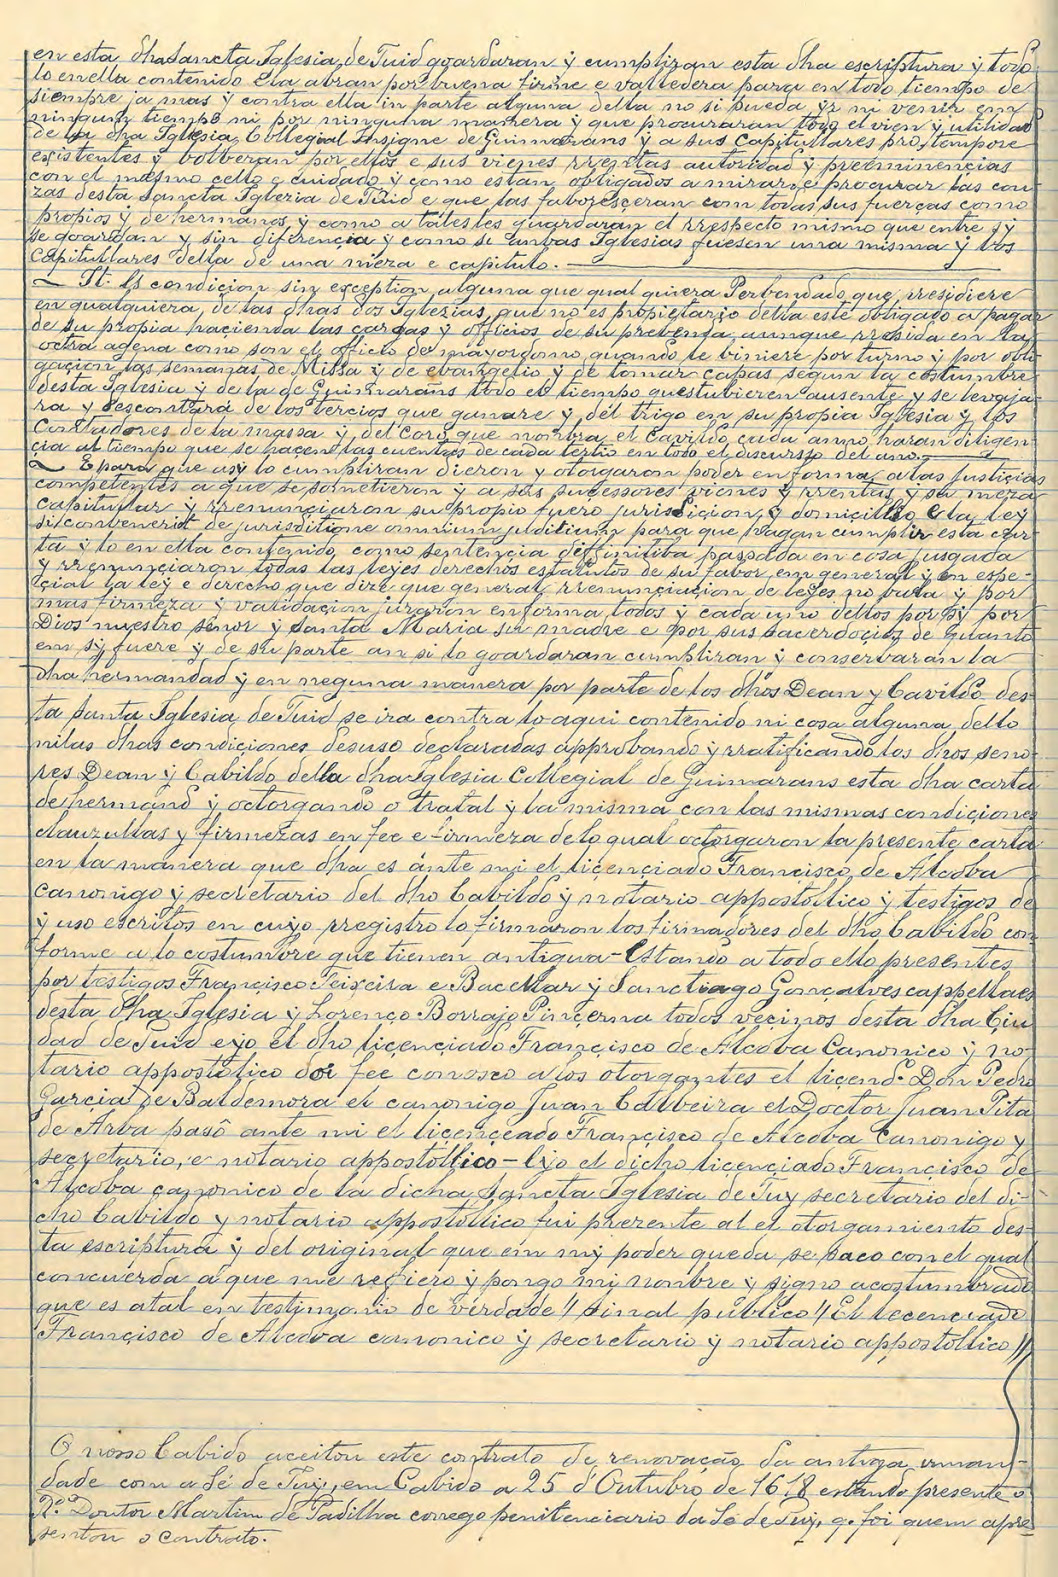 en esta dha Sancta Iglesia, de Tuid goardaran y cumpliran esta dha escriptura y todo
lo en ella contenido e la abran por buena firme e valledera para en todo tiempo de
siempre ja mas y contra ella in parte alguna della no si pueda yr ni venir em
ningum tiempo ni por ninguna manera y que procuraran todo el vien y utilidad
de la dha Iglesia, Collegial Insigne de Guimarans y a sus Capitullares pro, tempore
existentes y bolberan por ellos e sus vienes rrentas autoridad y preeminencias
con el mesmo cello e cuidado y como estan obligados a mirar e procurar las con
zas desta Sancta Iglezia de Tuid e que las faboresceran com todas sus fuerças como
propios y de hermanos y como a tales les guardaran el rrespecto mismo que entre sy
se goardan y sin diferencia y como si ambas Iglesias fuesen una misma y los
capitullares della de una meza e capitulo.
It. Es condicion sin exception alguna que qual quiera Perbendado que, rresidiere
en qualquiera, de las dhas dos Iglezias, que no es propietario della esté obligado a pagar
de su propia hacienda las cargas y officios de su prebenda, aunque rresida en la
octra agena como son el officio de mayordomo, quando le biniere por turno y por obli
gacion, las semanas de Missa y de evangelio y de tomar capas segun la costumbre
desta Iglesia y de la de Guimarans todo el tiempo questubieren ausente y se
ra y descontará de los tercios que ganare y del trigo em su propia Iglesia y los
Contadores de la massa y del coro que nombra, el Cavildo, cada anno, haran diligen
cia al tiempo que se hacen las cuentas de cada tertio en todo el discursso del ano.
E para que asy lo cumpliran dieron y otorgaron poder en forma a las Justiçias
competentes a que se sometieron y a sus sucessores vienes y rrentas y su meza
capitular y rrenunciaron su propio fuero jurisdiçion, y domicillio e la ley
si convenerit de jurisditione omnium juditium para que hagan cumplir esta car
ta y lo en ella contenido, como sentencia deffinitiba passada en cosa jusgada
y rrenunciaron todas las leyes derechos estatutos de su fabor, em general y en espe-
çial la ley e derecho que dize que general rrenunciaçion de leyes no bala y por
mas firmeza y validaçion, juraron en forma todos y cada uno dellos por sy por
Dios nuestro señor y Santa Maria su madre e por sus sacerdoçios de quanto
em sy fuere y de su parte an si lo goardaran cumpliran y conservaran la
dha hermandad y en neguma manera por parte de los dhos Dean y Cavildo, des-
ta santa Iglesia, de Tuid se ira contra lo aqui contenido ni cosa alguma, dello
ni las dhas condiciones desuso declaradas approbando y rratificando los dhos seno-
res Dean y Cabildo della dha Iglesia Collegial de Guimarans esta dha carta
de hermand y octorgando o tratal y la misma con las mismas condiçiones
clauzullas y firmezas en fee e firmeza de lo qual octorgaron la presente carta
en la manera que dha es ante mi el liçençiado Françisco, de Alcoba
canonigo y secretario del dho Cabildo y notario appostollico y testigos de
y uso escritos en cuyo rregistro lo firmaron los firmadores del dho Cabildo con
forme a lo costumbre que tienen antigua – Estando a todo ello presentes
por testigos Françisco Teixeira e Bacellar y Sanctiago Gonçalves cappellaes
desta dha Iglesia y Lorenço Borrajo Pinçerna todos vecinos desta dha Ciu
dad de Tuid e yo el dho liçençiado Françisco de Alcoba Canonico y no-
tario appostolico doi fee conosco a los otorgantes el liçend. Don Pedro
Garçia de Baldemora el canonigo Juan Calveira el Doctor Juan Pita
de Arba pasó ante mi el liçençeado Françisco de Alcoba Canonigo y
secretario, e notario appostóllico – E yo el dicho liçençiado Françisco de
Alcoba canonico de la dicha Sancta Iglesia de Tuy secretario del di-
cho Cabildo y notario appostóllico fui prezente al el otorgamiento des-
ta escriptura y del original que em my poder queda se saco con el qual
concuerda a que me refiero y pongo mi nombre y signo acostumbrado
que es atal en testimonio de verdade // sinal público // El lecenciado
Françisco de Alcoba canonico y secretario y notario appostóllico //
O nosso Cabido aceitou este contrato de renovação da antiga irman-
dade com a Sé de Tuy, em Cabido a 25 d'Outubro de 1618 estando presente o
R.do Doutor Martim de Padilha conego penitenciario da Sé de Tuy, q. foi quem apre
sentou o contrato.